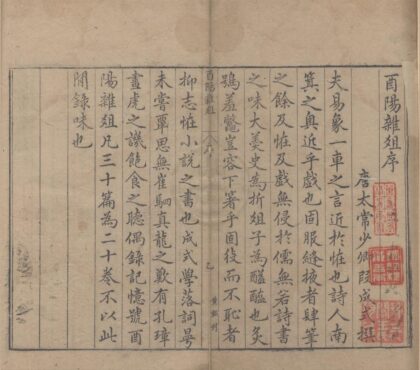 酉陽雜俎序
唐太常少卿段成式撰
夫易象一車之言近於怪也詩人南
箕之奥近乎戲也固服縫掖者肆筆
之餘及怪及戲無侵於儒無若詩書
之味大羹史為折俎子為醯醢也炙
鴞羞鱉豈容下箸乎固役而不恥者
抑志怪小說之書也成式學落詞曼
未嘗覃思無崔駰真龍之歎有孔璋
畫虎之譏飽食之暇偶錄記憶號酉
陽雜俎凡三十篇為二十卷不以此
間錄味也
酉陽雜俎